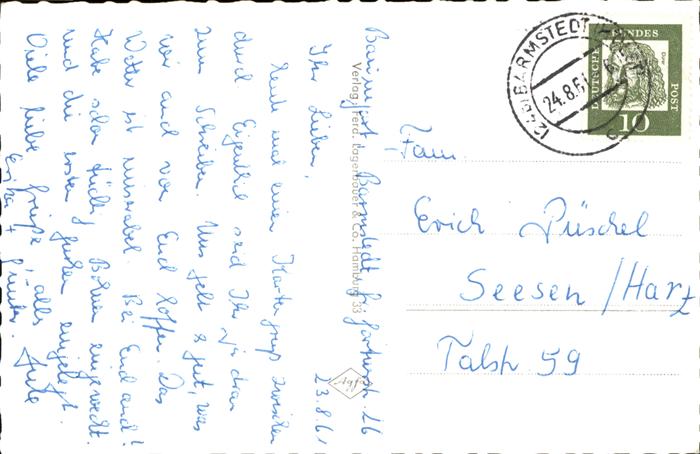 Barmstedt
23.8.61
Ihr Lieben,
Heute mal einen Kartengruß zwischen
durch. Eigentlich seid Ihr ja dran
zum Schreiben. Uns geht es gut, was
wir auch von Euch hoffen. Das
Wetter ist miserabel. Bei Euch auch?
Habe schon tüchtig Bohnen eingeweckt
und die ersten Gurken eingelegt.
Viele liebe Grüße, alles Gute
Erika + Günter.
Verlag: Ferd. Lagerbauer & Co. Hamburg 33
Agfa
(24b) BARMSTEDT
24.8.61
DEUTSCHE BUNDESPOST
Dürer
10
Fam.
Erich Püschel
Seesen/Harz
Talstr 59